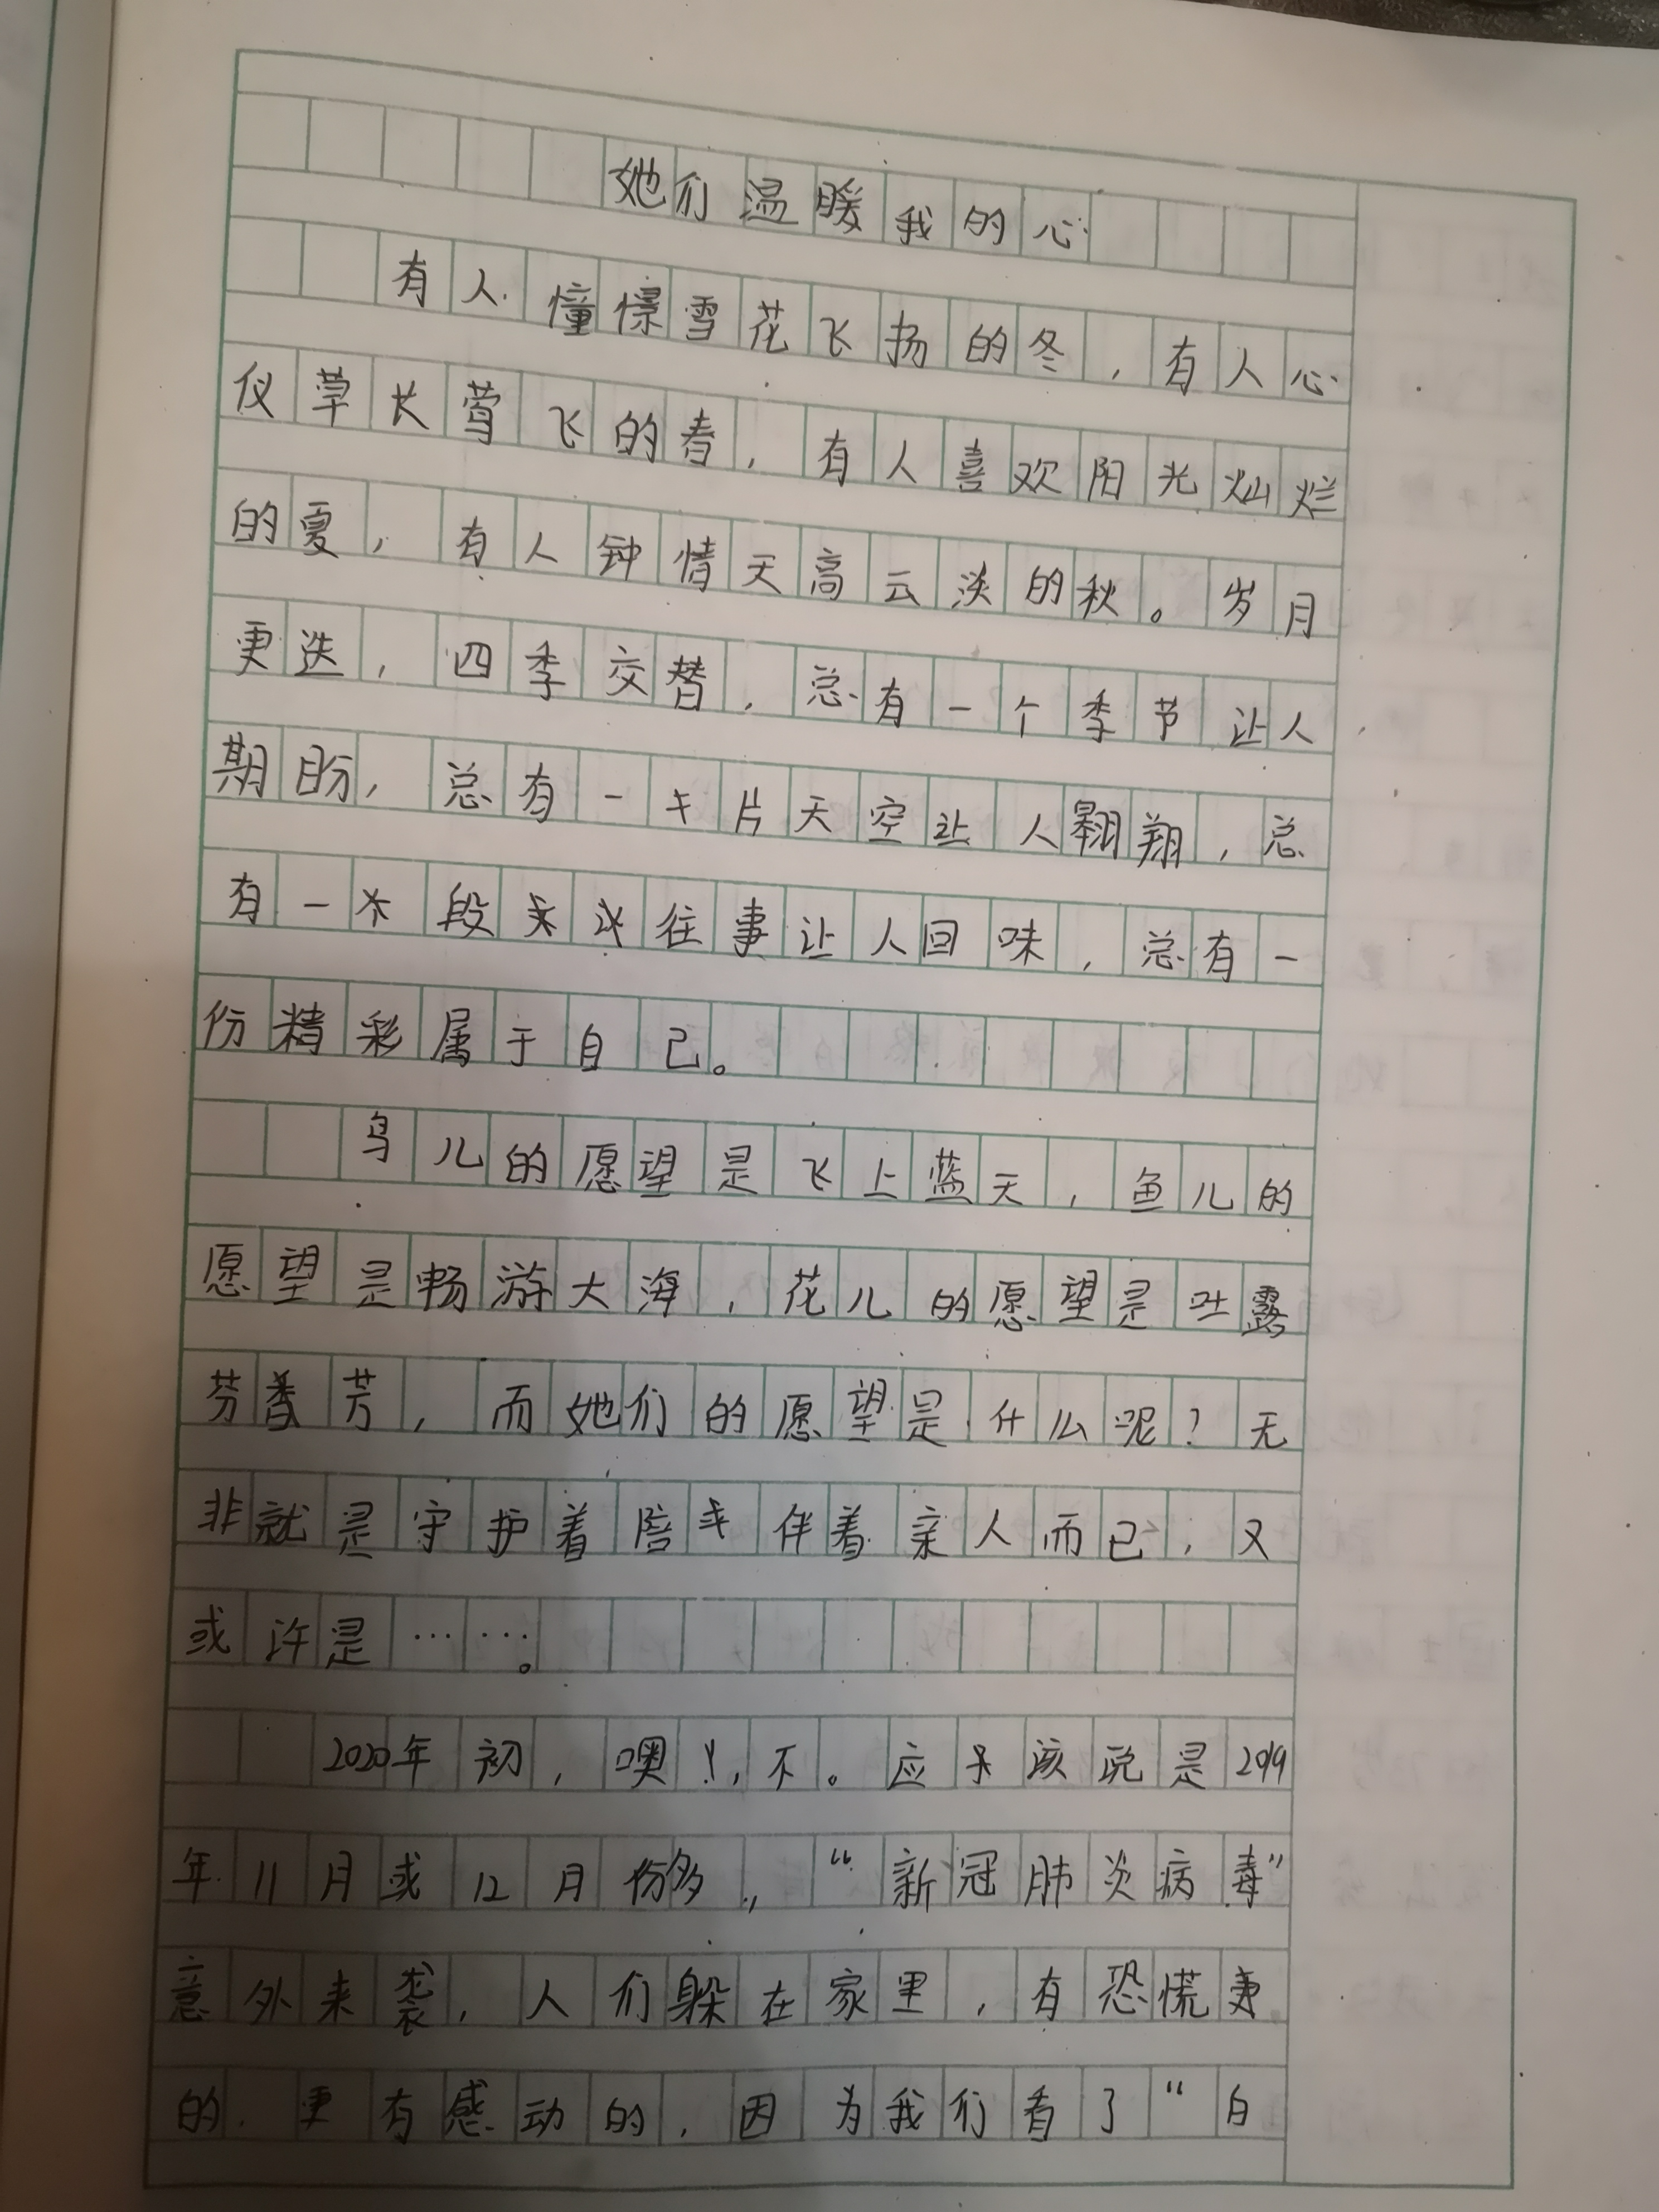 她们温暖我的心
有人憧憬雪花飞扬的冬，有人心
仪草长莺飞的春，有人喜欢阳光灿烂
的夏，有人钟情天高云淡的秋。岁月
更迭，四季交替，总有一个季节让人
期盼，总有一片天空让人翱翔，总
有一段往事让人回味，总有一
份精彩属于自己。
鸟儿的愿望是飞上蓝天，鱼儿的
愿望是畅游大海，花儿的愿望是吐露
芬芳，而她们的愿望是什么呢？无
非就是守护着陪伴着亲人而已，又
或许是……。
2020年初，噢！，不。应该说是2019
年11月或12月份，“新冠肺炎病毒”
意外来袭，人们躲在家里，有恐慌
的.更有感动的，因为我们看了“白